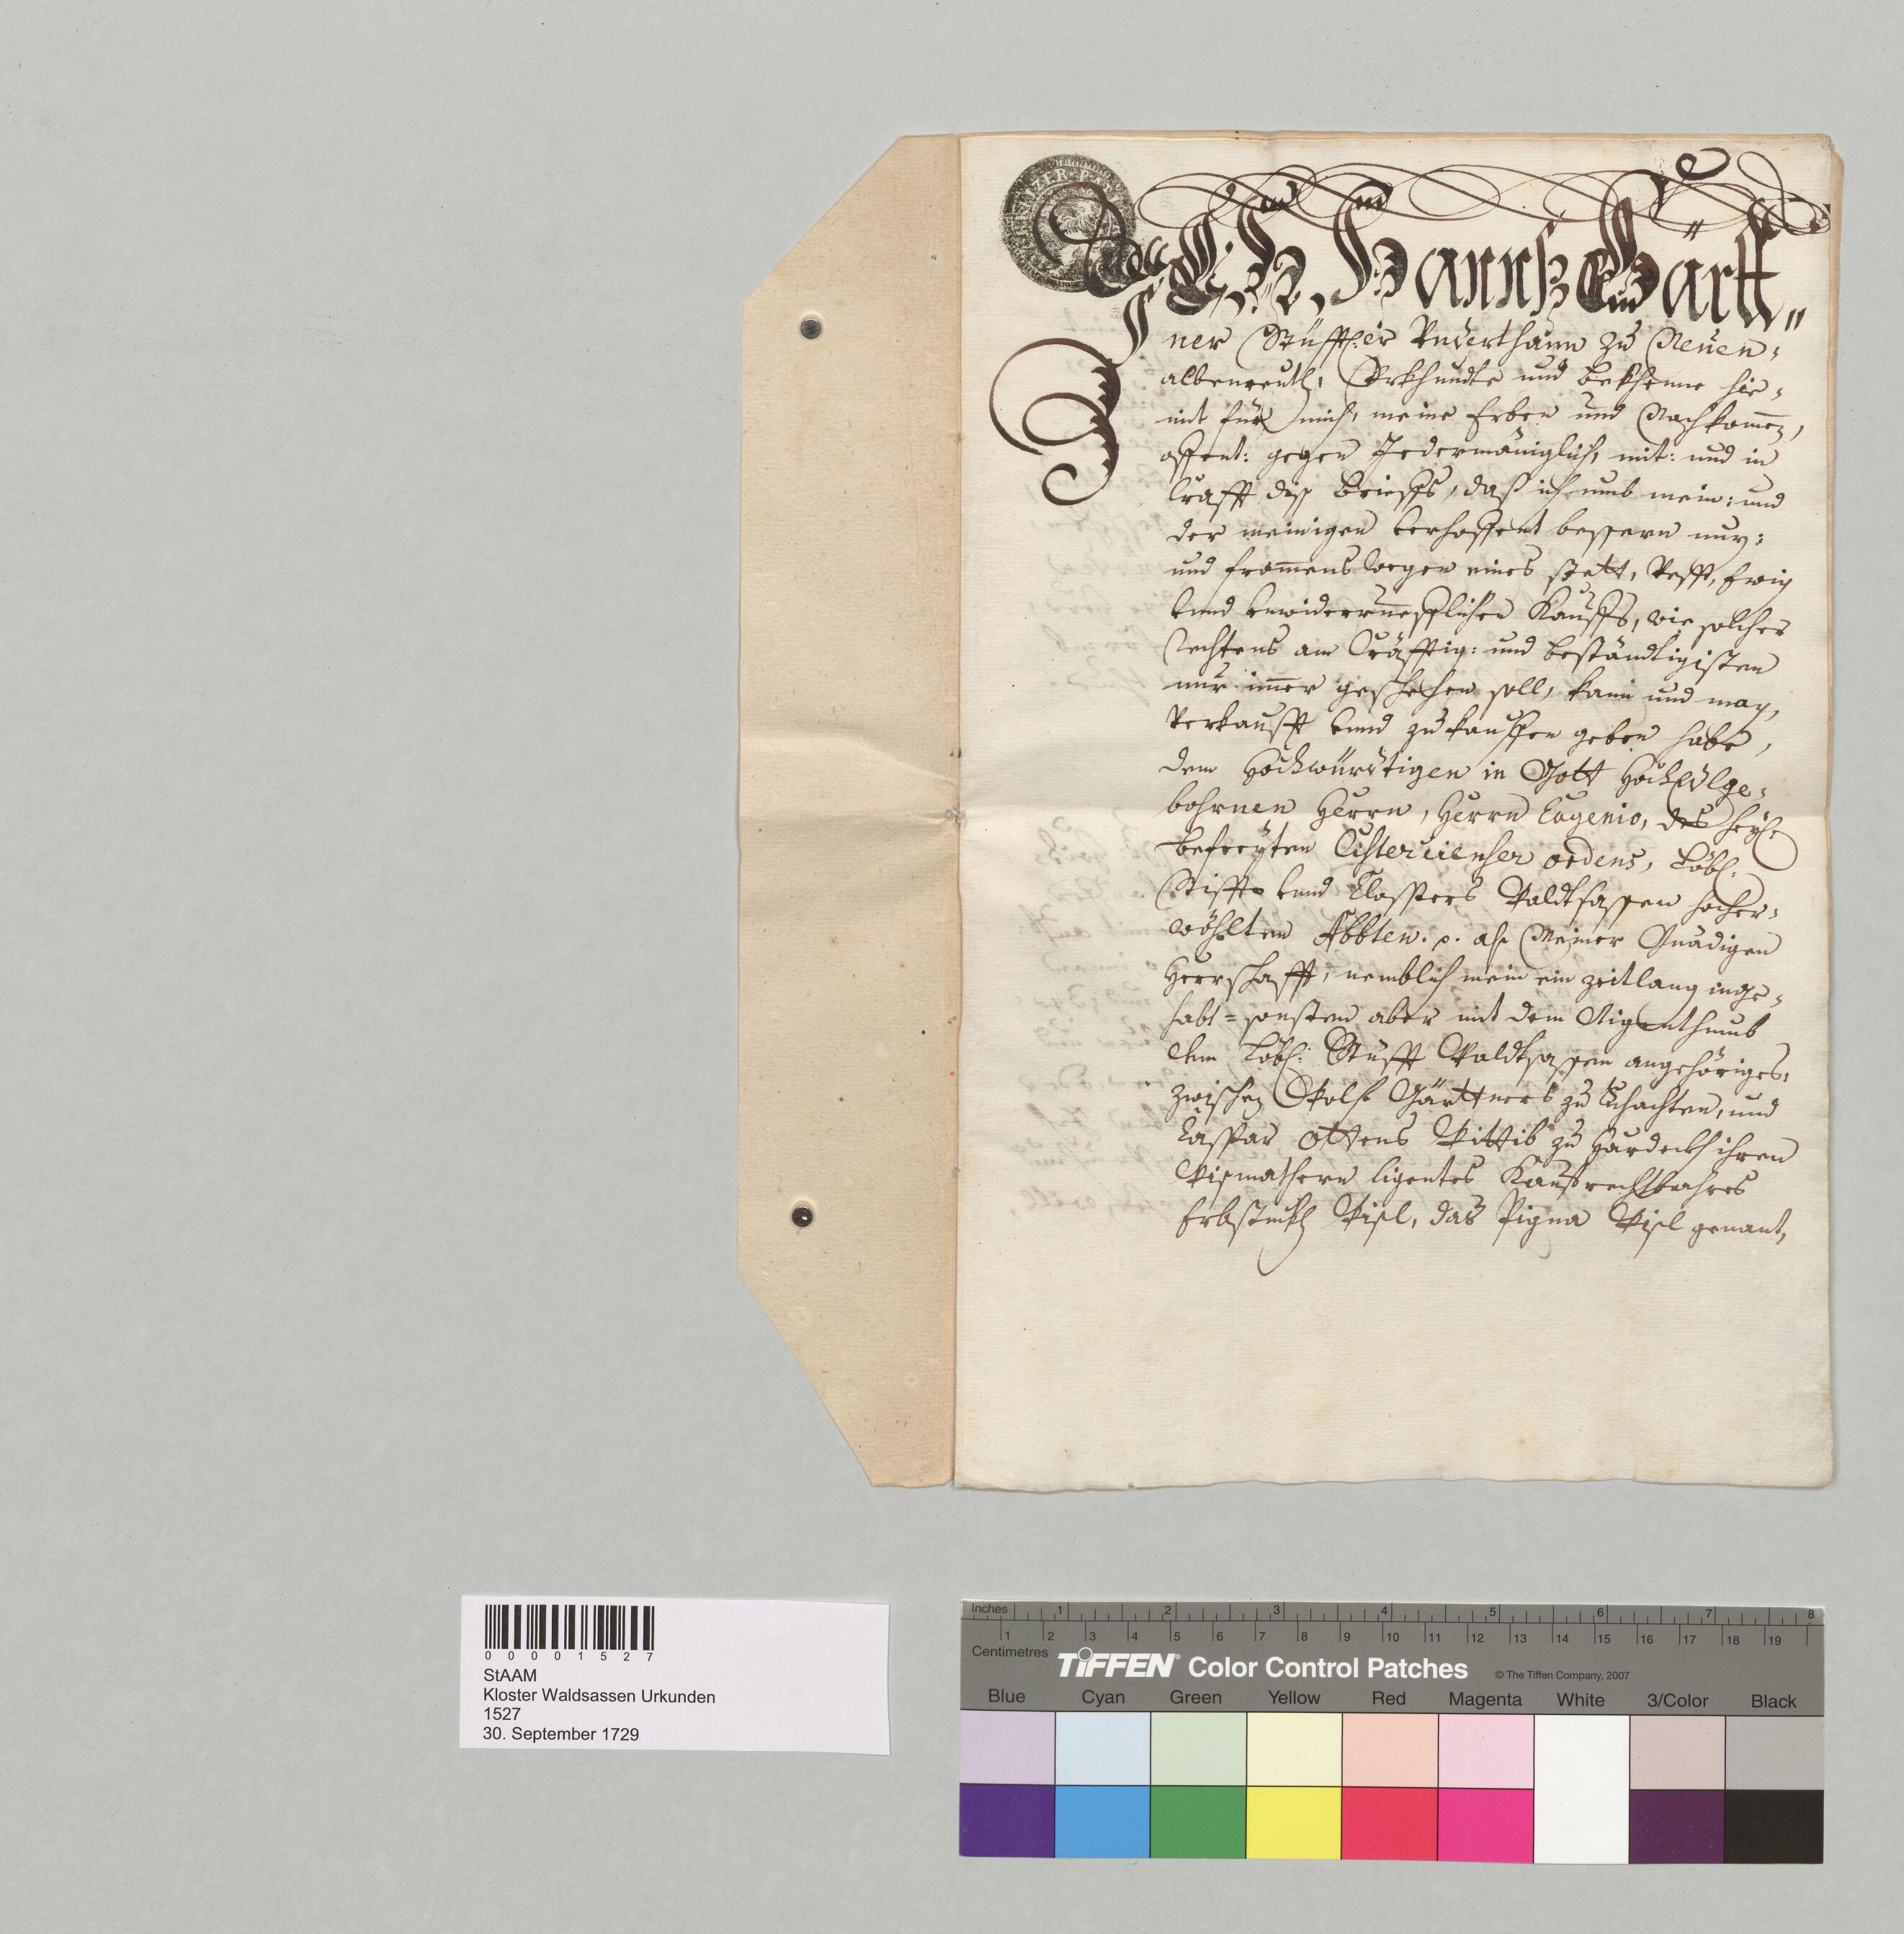 Ich Hannß Gärtt„
ner Stüfft: er Underthann zu Neuen=
albenreuth, Urkhundte und bekhenne hie=
mit für mich, meine Erben und Nachkom̄en,
offent: gegen Jedermäniglich, mit: und in
Crafft diß Brieffs, daß ich umb mein: und
der meinigen verhoffent bessern nuz:
und from̄ens wegen eines stett, Vesst, Ewig
vnd vnwiderruefflichen Kauffs, wie solches
Rechtens am Cräfftig: und beständtigisten
nur im̄er geschehen soll, kann und mag,
Verkaufft vnnd zu kauffen geben habe,
dem Hochwürdtigen in Gott Hochedlge=
bohrnen Herrn, Herrn Eugenio, des heyl:
befreyten Cistercienser ordens, Löbl:
Stiffts vnnd Closters Waldtsassen hocher=
wöhlten Abbten. p. alß Meiner Gnädigen
Herrschafft, nemblich mein ein zeitlang inge=
habt= sonsten aber mit dem Aigenthumb
dem Löbl: Stüfft Waldtsassen angehöriges,
zwischen Wolf Gärttners zu Schachten, und
Caspar Ottens Wittib zu Hardeckh ihren
Wißmathern ligentes Kaufrechtbahres
Erbstuckh Wißl, das Pigna Wißl genant,
StAAM
Kloster Waldsassen Urkunden
1527
30. September 1729
0 0 0 0 1 5 2 7
Inches 1 2 3 4 5 6 7 8
1 2 3 4 5 6 7 8 9 10 11 12 13 14 15 16 17 18 19
Centimetres
TIFFEN® Color Control Patches © The Tiffen Company, 2007
Blue Cyan Green Yellow Red Magenta White 3/Color Black